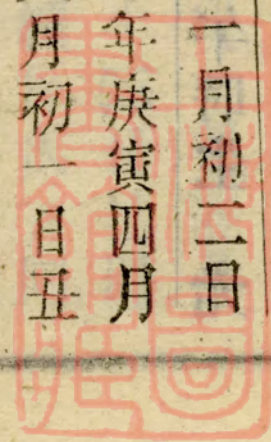 一月初二日
年庚寅四月
月初一日丑